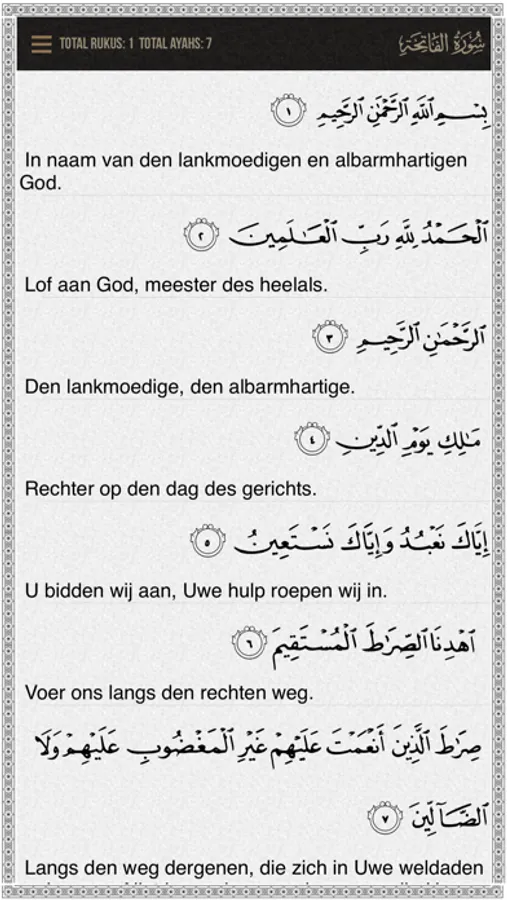 TOTAL RUKUS: 1 TOTAL AYAHS: 7
سُورَةُ الفَاتِحَةِ
بِسْمِ ٱللَّهِ ٱلرَّحْمَٰنِ ٱلرَّحِيمِ ١
In naam van den lankmoedigen en albarmhartigen
God.
ٱلْحَمْدُ لِلَّهِ رَبِّ ٱلْعَٰلَمِينَ ٢
Lof aan God, meester des heelals.
ٱلرَّحْمَٰنِ ٱلرَّحِيمِ ٣
Den lankmoedige, den albarmhartige.
مَٰلِكِ يَوْمِ ٱلدِّينِ ٤
Rechter op den dag des gerichts.
إِيَّاكَ نَعْبُدُ وَإِيَّاكَ نَسْتَعِينُ ٥
U bidden wij aan, Uwe hulp roepen wij in.
ٱهْدِنَا ٱلصِّرَٰطَ ٱلْمُسْتَقِيمَ ٦
Voer ons langs den rechten weg.
صِرَٰطَ ٱلَّذِينَ أَنْعَمْتَ عَلَيْهِمْ غَيْرِ ٱلْمَغْضُوبِ عَلَيْهِمْ وَلَا
ٱلضَّآلِّينَ ٧
Langs den weg dergenen, die zich in Uwe weldaden